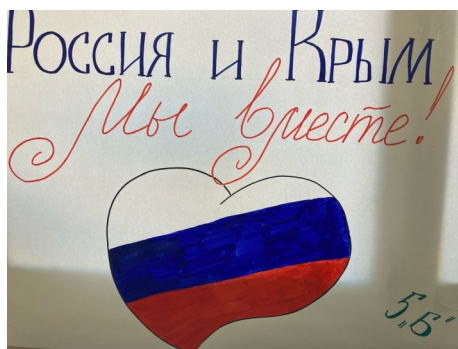 Россия и Крым
Мы вместе!
5 "Б"